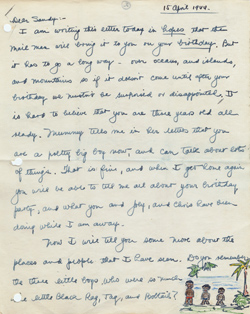 15 April 1944.
Dear Sandy:-
I am writing this letter today in hopes that the
mail man will bring it to you on your birthday. But
it has to go a long way - over oceans, and islands,
and mountains so if it doesn't come until after your
birthday we mustn't be surprised or disappointed. It
is hard to believe that you are three years old all
ready. Mummy tells me in her letters that you
are a pretty big boy now, and can talk about lots
of things. That is fine, and when I get home again
you will be able to tell me all about your birthday
party, and what you and Joey, and Chris have been
doing while I am away.
Now I will tell you some more about the
places and people that I have seen. Do you remember
the three little boys who were so much
like little Black Rag, Tag, and Bobtail?